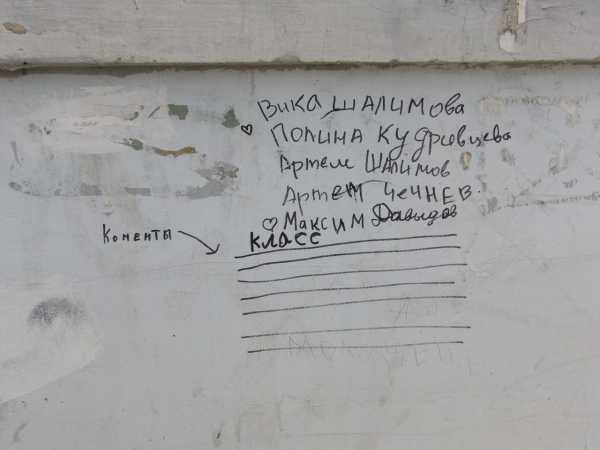 Вика Шалимова
♡ Полина Кудрявцева
Артем Шалимов
Артем Чечнев.
♡ Максим Давыдов
Коменты
класс